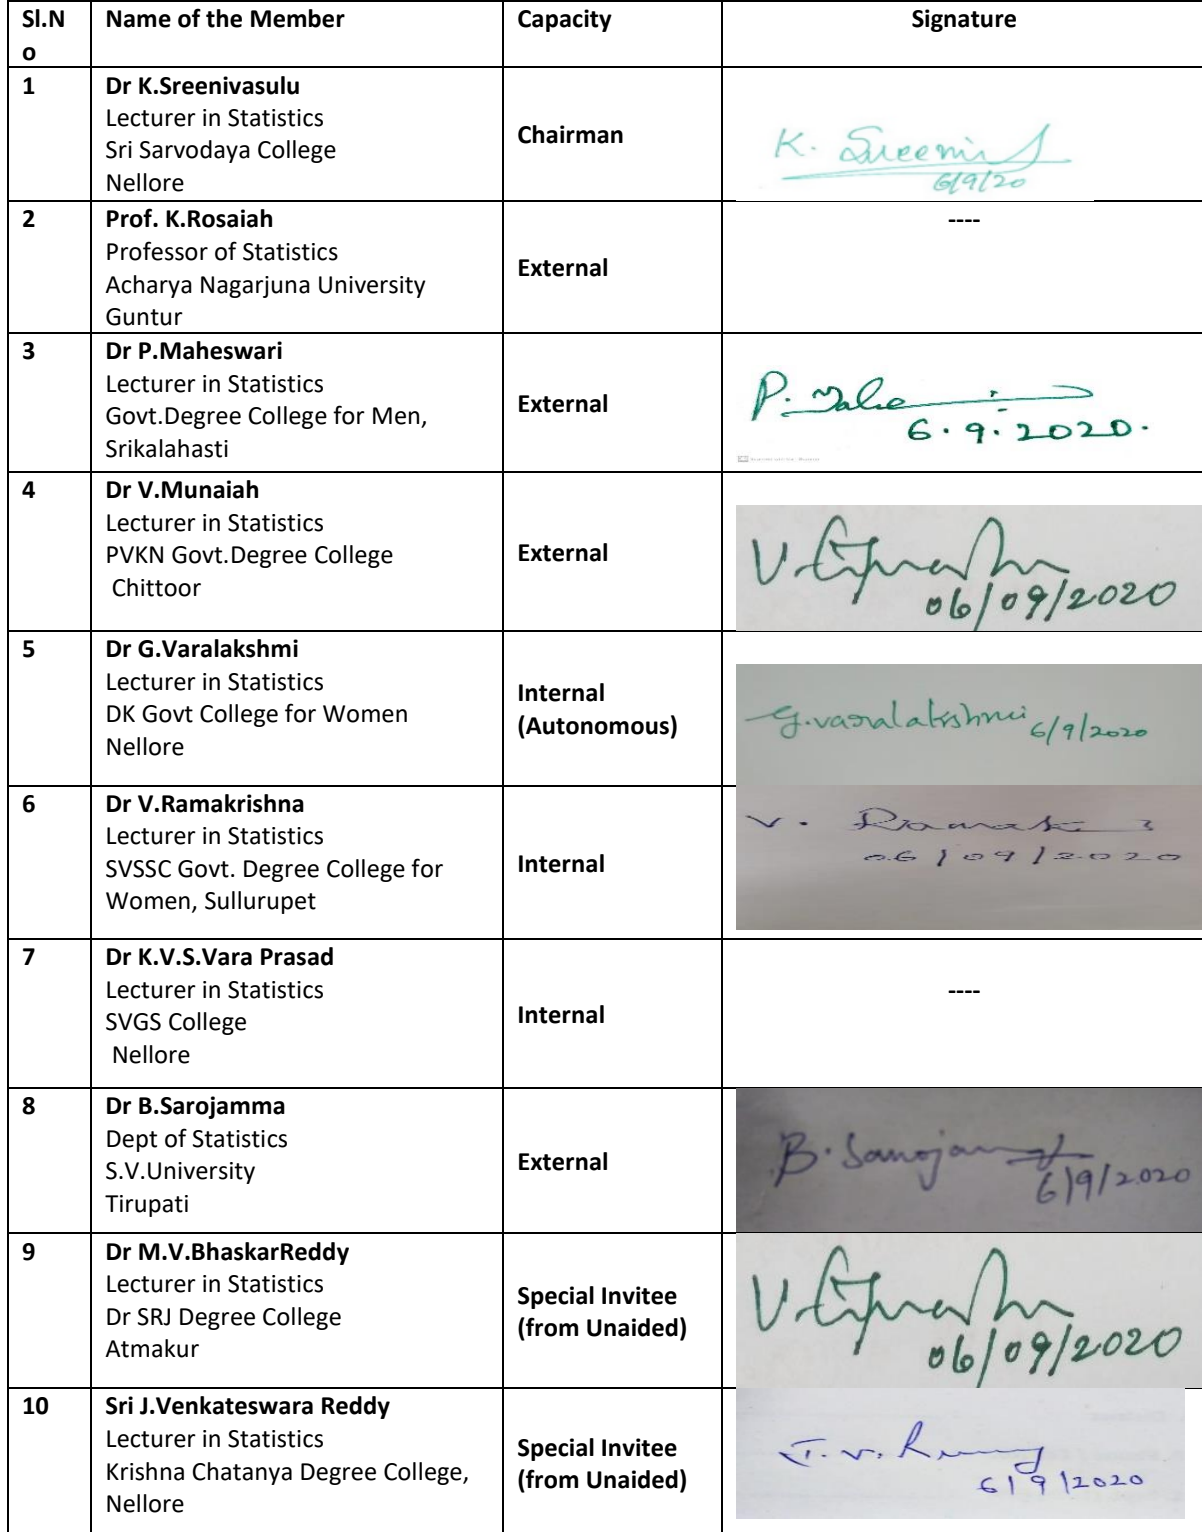 Sl.N
o
Name of the Member
Capacity
Signature
1
Dr K.Sreenivasulu
Lecturer in Statistics
Sri Sarvodaya College
Nellore
Chairman
K. Sreenivas
6/9/20
2
Prof. K.Rosaiah
Professor of Statistics
Acharya Nagarjuna University
Guntur
External
----
3
Dr P.Maheswari
Lecturer in Statistics
Govt.Degree College for Men,
Srikalahasti
External
P.
6.9.2020.
4
Dr V.Munaiah
Lecturer in Statistics
PVKN Govt.Degree College
Chittoor
External
V.
06/09/2020
5
Dr G.Varalakshmi
Lecturer in Statistics
DK Govt College for Women
Nellore
Internal
(Autonomous)
G.varalakshmi 6/9/2020
6
Dr V.Ramakrishna
Lecturer in Statistics
SVSSC Govt. Degree College for
Women, Sullurupet
Internal
V. Ramak
06/09/2020
7
Dr K.V.S.Vara Prasad
Lecturer in Statistics
SVGS College
Nellore
Internal
----
8
Dr B.Sarojamma
Dept of Statistics
S.V.University
Tirupati
External
B. Sarojam
6/9/2020
9
Dr M.V.BhaskarReddy
Lecturer in Statistics
Dr SRJ Degree College
Atmakur
Special Invitee
(from Unaided)
V.
06/09/2020
10
Sri J.Venkateswara Reddy
Lecturer in Statistics
Krishna Chatanya Degree College,
Nellore
Special Invitee
(from Unaided)
J. V. R
6/9/2020